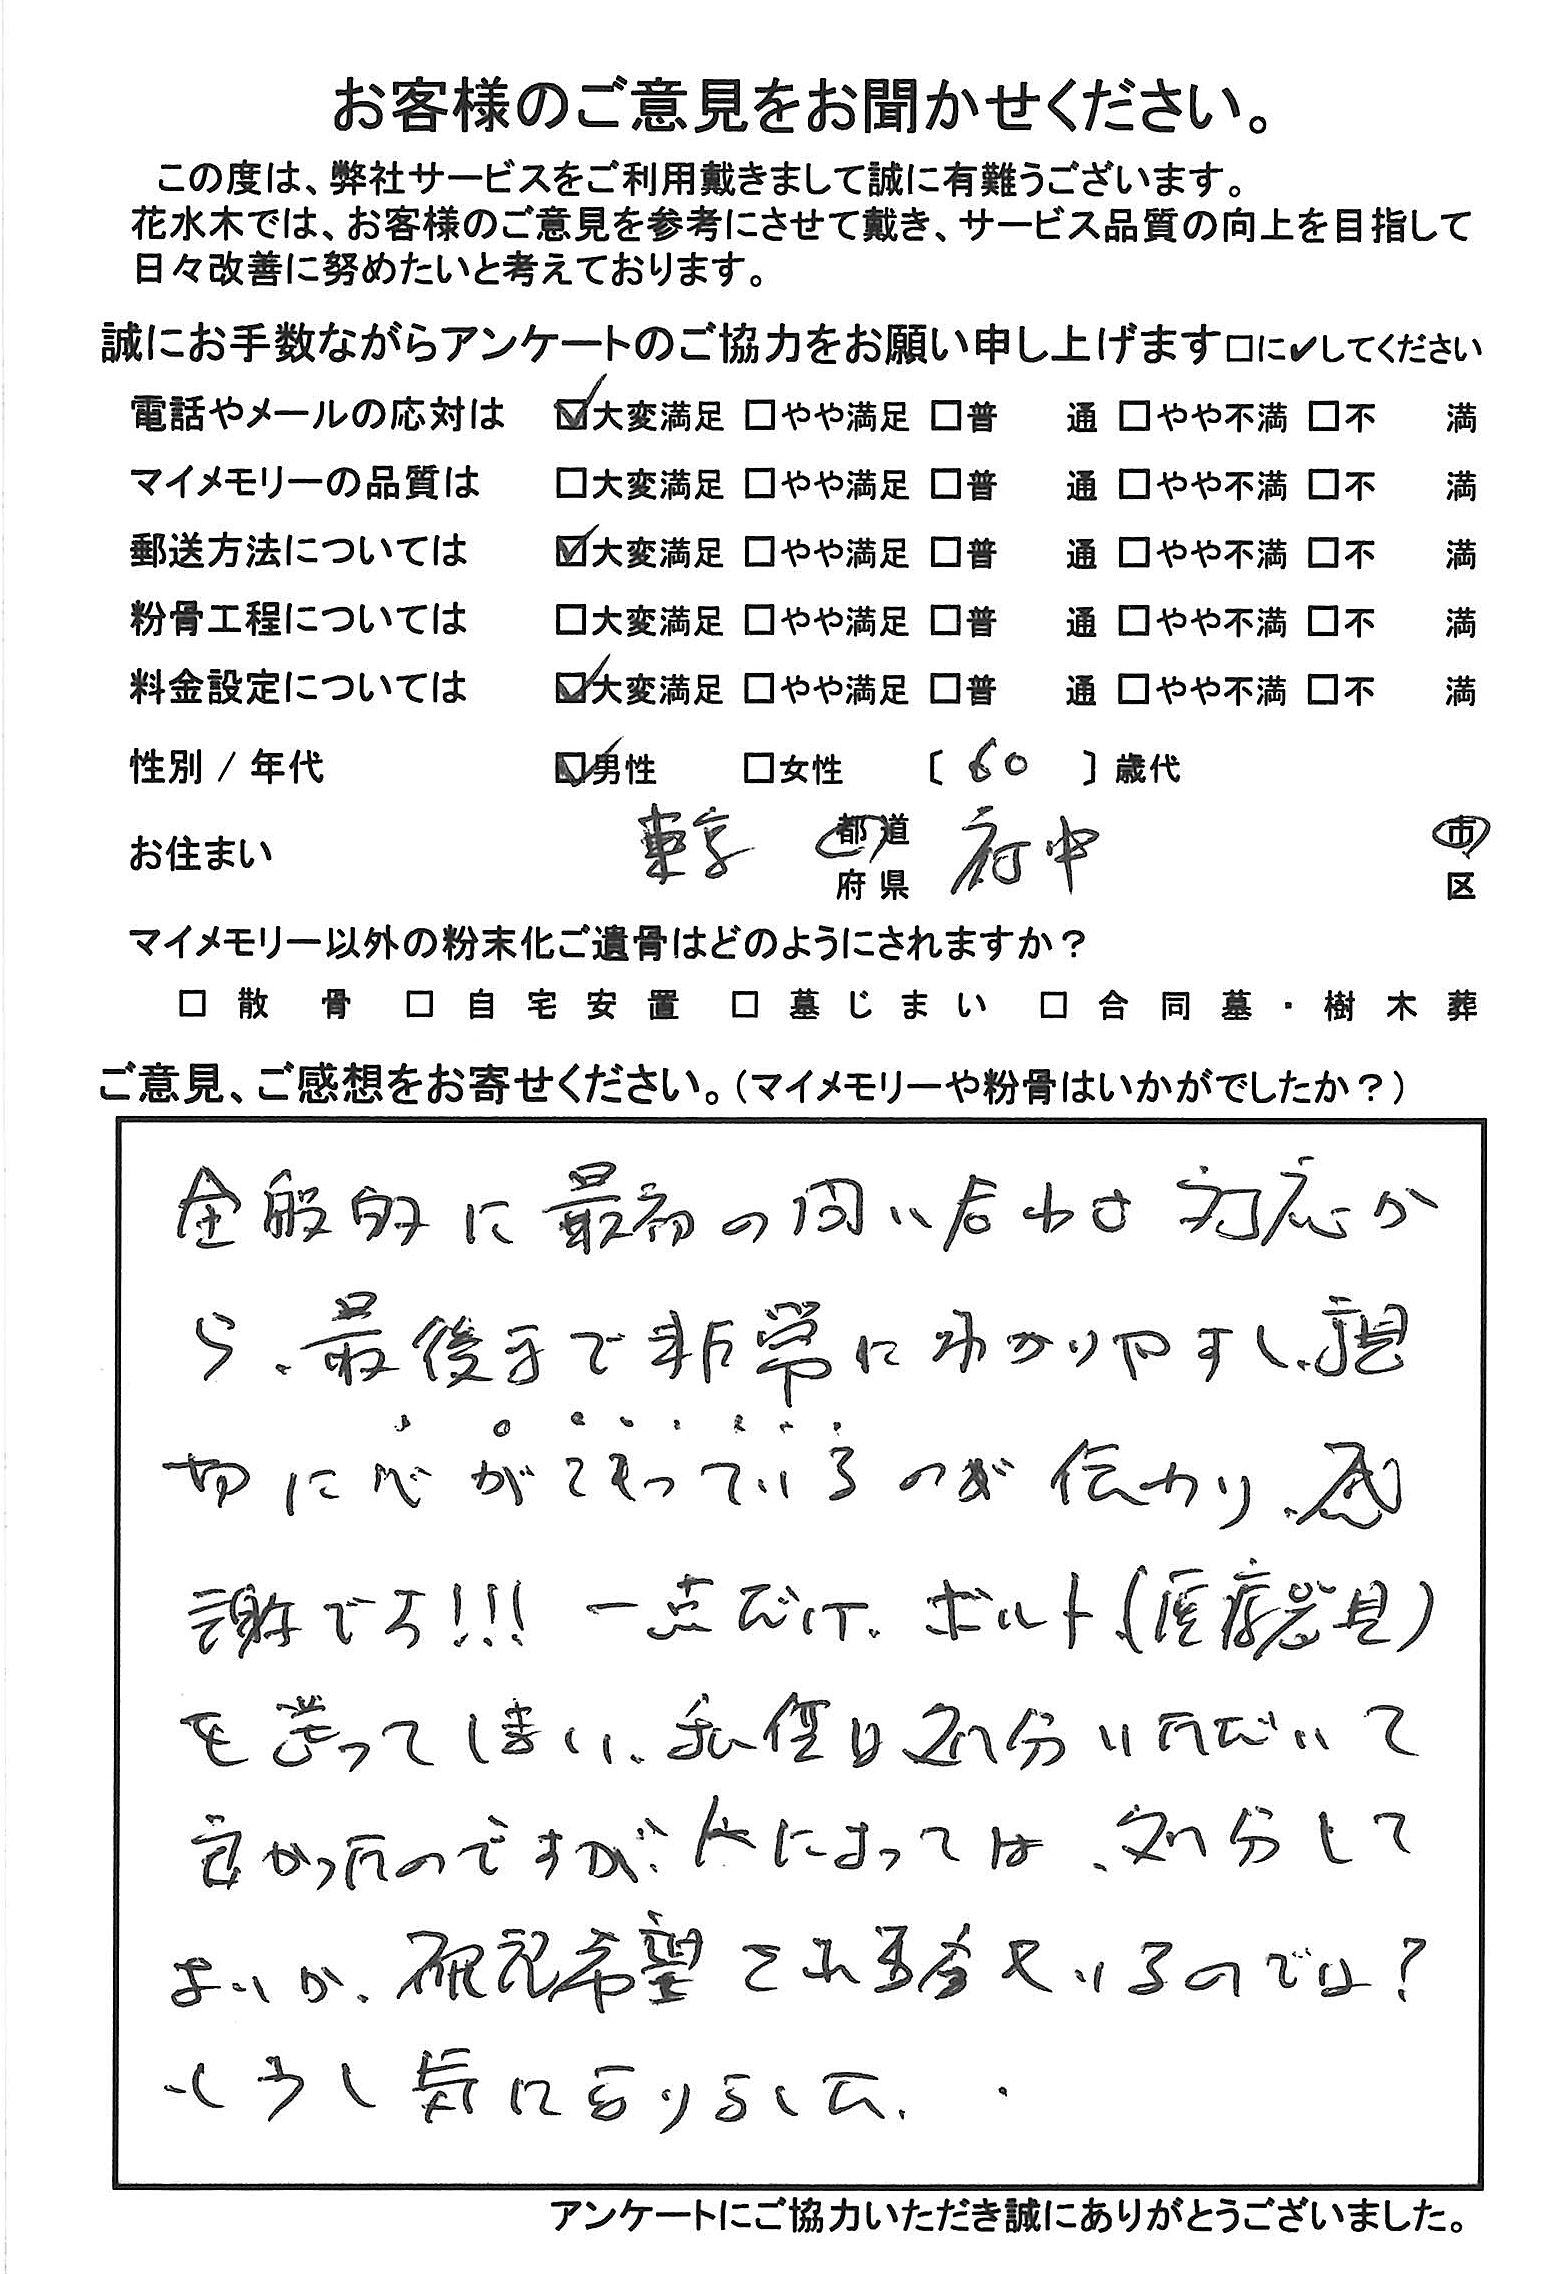 お客様のご意見をお聞かせください。
この度は、弊社サービスをご利用戴きまして誠に有難うございます。
花水木では、お客様のご意見を参考にさせて戴き、サービス品質の向上を目指して
日々改善に努めたいと考えております。
誠にお手数ながらアンケートのご協力をお願い申し上げます□に✔してください
電話やメールの応対は ☑大変満足 □やや満足 □普 通 □やや不満 □不 満
マイメモリーの品質は □大変満足 □やや満足 □普 通 □やや不満 □不 満
郵送方法については ☑大変満足 □やや満足 □普 通 □やや不満 □不 満
粉骨工程については □大変満足 □やや満足 □普 通 □やや不満 □不 満
料金設定については ☑大変満足 □やや満足 □普 通 □やや不満 □不 満
性別 / 年代 ☑男性 □女性 〔 60 〕歳代
お住まい 東京 都道府県 府中 市区
マイメモリー以外の粉末化ご遺骨はどのようにされますか?
□ 散骨 □ 自宅安置 □ 墓じまい □ 合同墓・樹木葬
ご意見、ご感想をお寄せください。(マイメモリーや粉骨はいかがでしたか?)
全般的に最初の問い合わせ対応か
ら、最後まで非常にわかりやすく、親
切に心がこもっているのが伝わり、感
謝です!!! 一点だけ、ボルト(医療器具)
を送ってしまい、私僅は処分いただいて
良かったのですが、人によっては、処分して
よいか、確認希望される方もいるのでは?
と少し気になりました。
アンケートにご協力いただき誠にありがとうございました。